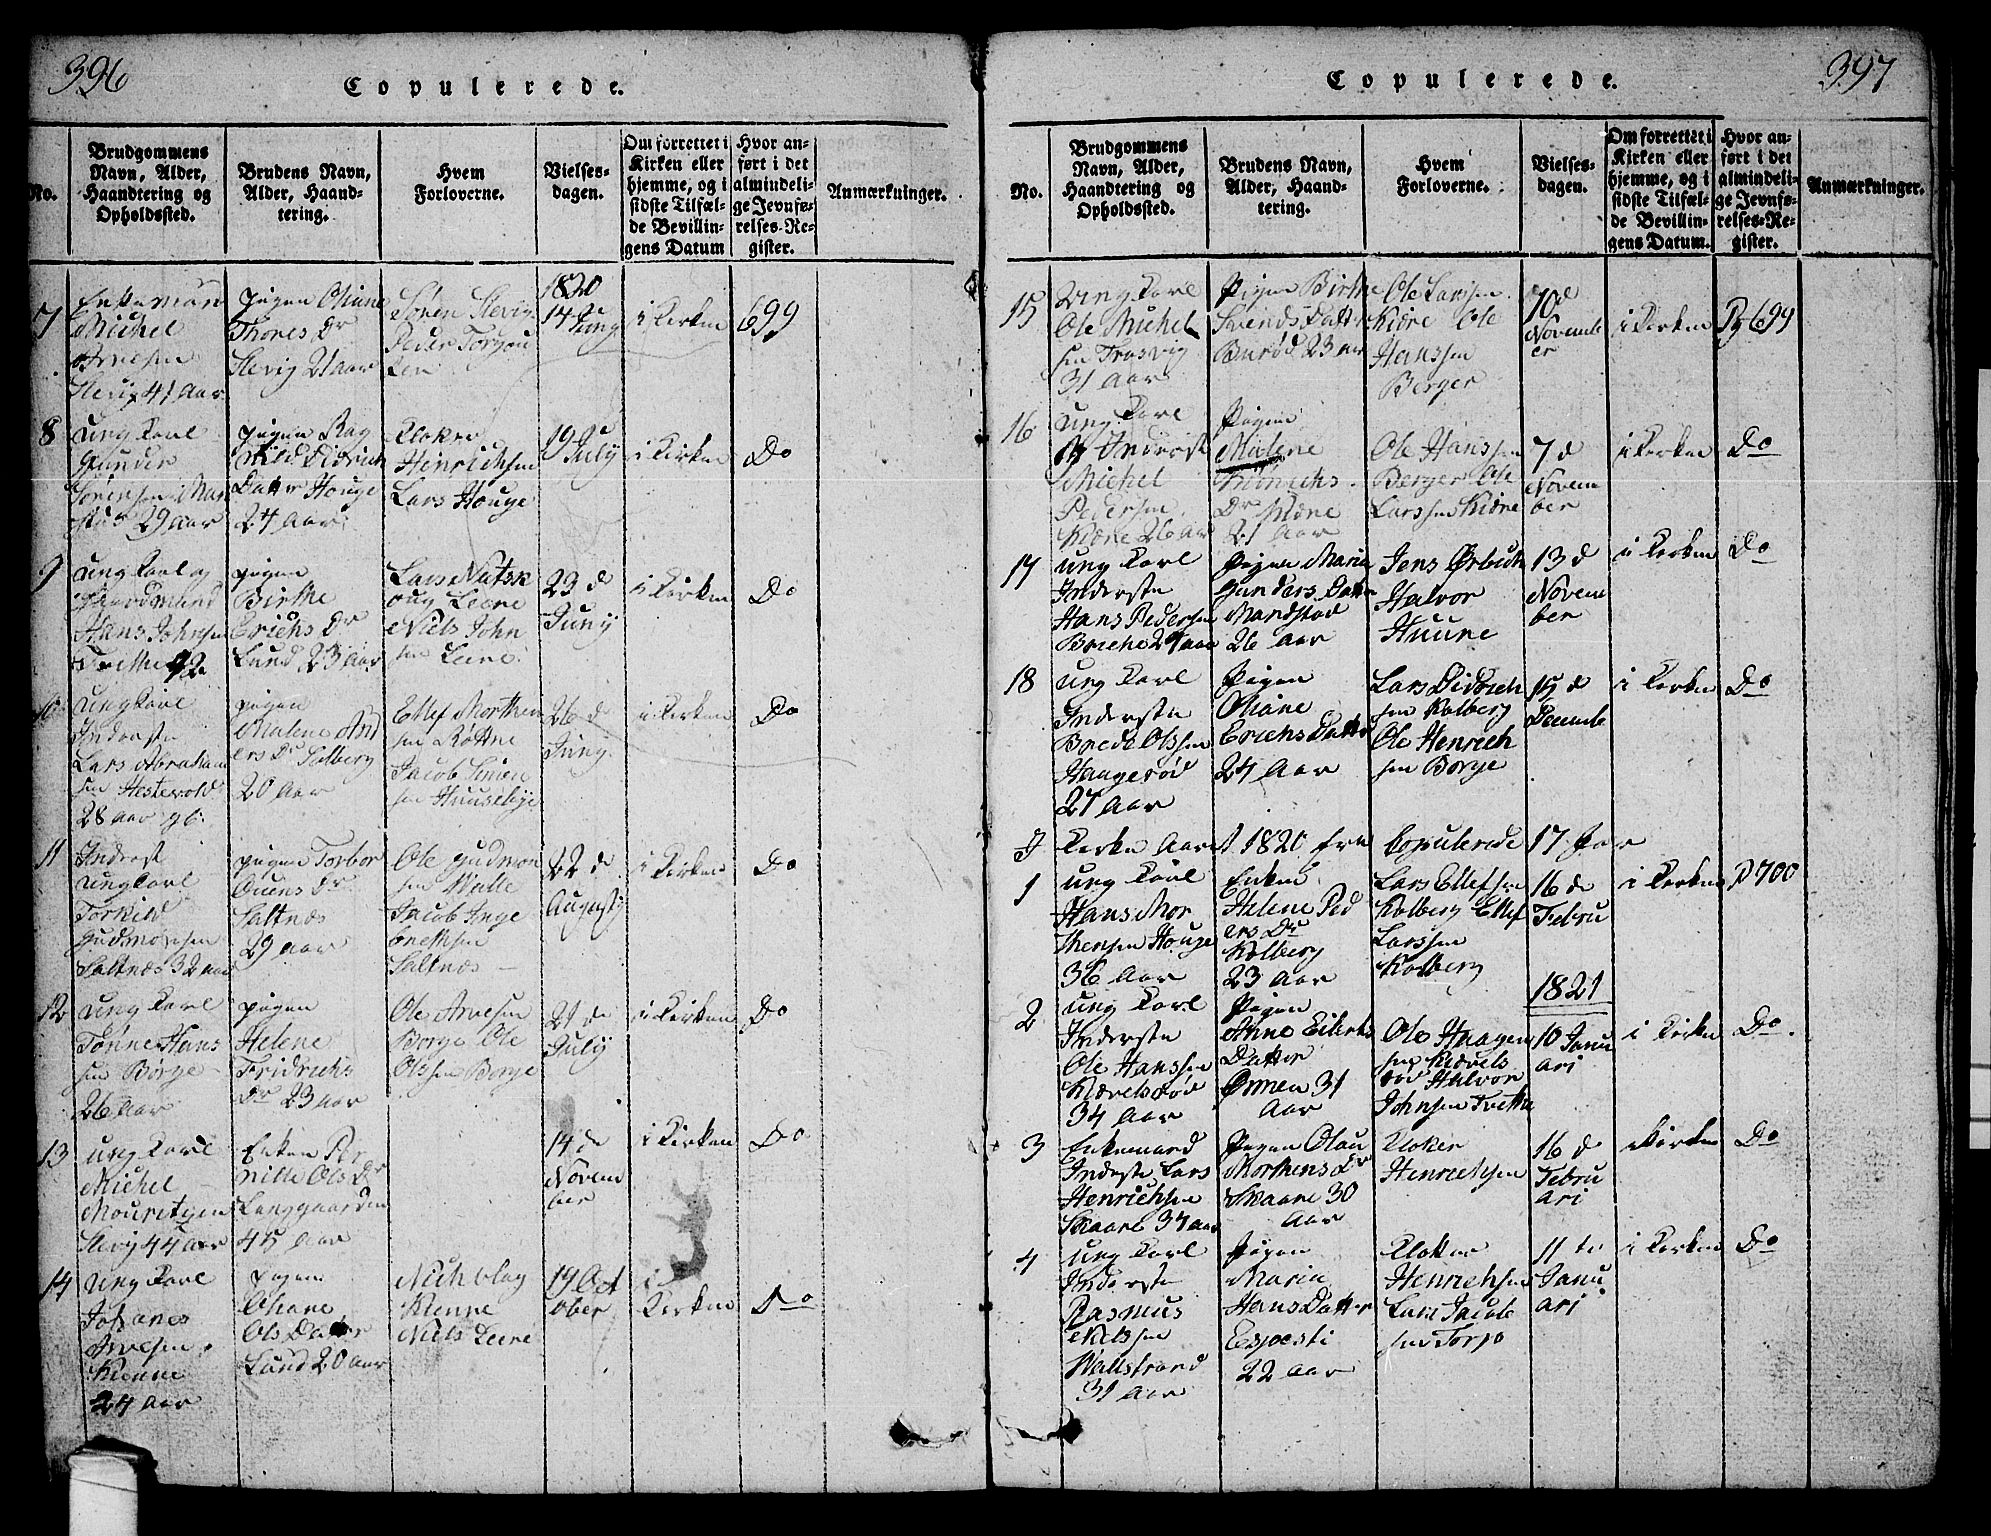 396
Copulerede.
No.
Brudgommens
Navn, Alder,
Haandtering og
Opholdssted.
Brudens Navn,
Alder, Haand-
tering.
Hvem
Forloverne.
Vielses-
dagen.
Om forrettet i
Kirken eller
hjemme, og i
sidste Tilfæl-
de Bevillin-
gens Datum
Hvor an-
ført i det
almindeli-
ge Jevnfø-
relses-Re-
gister.
Anmærkninger.
7
Enkeman
Michel
Arvesen
Slevig 41 Aar
pigen Oliane
Thores Dr
Slevig 21 aar
Søren Slevig
Peder Torgou
Leer
1820
14
Juny
i Kirken
699
8
Ung Karl
Gunder
Sørensen
29 aar
pigen Rag
nild Didrich
Datter Houge
24 Aar
Kloker
Hinrichsen
Lars Houge
19
July
i Kirken
Do
9
Ung Karl og
Gaardmand
Hans Johnsen
Tvethe 42
pigen
Birthe
Erichs Dr
Lund 23 aar
Lars Natsk
oug Leere
Niels John
sen Leere
23 d
Juny
i Kirken
Do
10
Ung Karl
Inderste
Lars Abraham
sen Hestevold
28 aar gl.
pigen
Malene And
ers Dr Solberg
20 Aar
Ellef Morthen
sen Røttne
Jacob Simen
sen Huusebye
26 d
Juny
i Kirken
Do
11
Inderst
Ung Karl
Torkild
Gudmonsen
Saltnæs 32 aar
pigen Torbor
Ouens Dr
Saltnæs
29 aar
Ole Gudmon
sen Walle
Jacob Inge
bretthsen
Saltnæs
22 de
Augusty
i Kirken
Do
12
Ung Karl
Tønne Hans
sen Borge
26 Aar
pigen
Helene
Fridrichs
Dr 23 aar
Ole Arvesen
Borge Ole
Olssen Borge
21 de
July
i Kirken
Do
13
Ung Karl
Michel
Mouritzen
Slevig 44 aar
Enken Per
nille Ols Dr
Langgaarden
45 Aar
14 de
Novem
ber
i Kirken
Do
14
Ung Karl
Johanes
Arvesen
Kienne
24 aar
pigen
Oliane
Ols Datter
Lund 20 aar
Nich olay
Kienne
Niels Leere
19 Oct
ober
i
Kirken
Do
397
Copulerede.
No.
Brudgommens
Navn, Alder,
Haandtering og
Opholdssted.
Brudens Navn,
Alder, Haand-
tering.
Hvem
Forloverne.
Vielses-
dagen.
Om forrettet i
Kirken eller
hjemme, og i
sidste Tilfæl-
de Bevillin-
gens Datum.
Hvor an-
ført i det
almindeli-
ge Jevnfø-
relses-Re-
gister.
Anmærkninger.
15
Ung Karl
Ole Michel
sen Trosvig
31 Aar
Pigen Birthe
Svends Datter
Burød 23 aar
Ole Larssen
Kiøre Ole
Hanssen
Berger
10 d
Novemb
er
i Kirken
Pg 699
16
Ung Karl
Inderst
Michel
Pedersen
Kiøre 26 aar
Pigen
Malene
Hinrichs
Dr Kiøre
21 Aar
Ole Hanssen
Berger Ole
Larssen Kiøre
7 d
Novem
ber
i Kirken
Do
17
Ung Karl
Inderste
Hans Pedersen
Breche 24 aar
Pigen Maria
Gunders Datter
Mandstad
26 Aar
Jens Ørbech
Halvor
Huune
13 d
Novem
ber
i Kirken
Do
18
Ung Karl
Inderste
Brede Olssen
Haugerød
27 Aar
Pigen
Oliane
Erichs Datter
24 Aar
Lars Didrich
sen Kolberg
Ole Henrich
sen Borge
15 d
Decembe
i Kirken
Do
I Kirke Aaret 1820 fra Copulerede 17 Par
1
Ung Karl
Hans Mor
thensen Houge
36 Aar
Enken
Helene Ped
ers Dr
Kolberg
23 Aar
Lars Ellefsen
Kolberg Ellef
Larssen
Kolberg
16 de
Febru
i Kirken
P 700
1821
2
Ung Karl
Inderste
Ole Hanssen
Kiærelsrød
34 Aar
Pigen
Anne Eilerts
Datter
Ørmen 31
Aar
Ole Haagen
sen Kiærels
rød Halvor
Johnsen Tvethe
10 Janu
ari
i Kirken
Do.
3
Enkemand
Inderste Lars
Henrichsen
Skaare 34 aar
Pigen Olau
Morthens Dr
Skaare 30
Aar
Kloker
Henrichsen
16 d
Febru
ari
i Kirken
Do
4
Ung Karl
Inderste
Rasmus
Nielssen
Wallstrand
31 Aar
Pigen
Maria
Hans Datter
Espesti
22 Aar
Klokker
Henrichsen
Lars Jacob
sen Torso
11 te
Janu
ari
i Kirken
Do